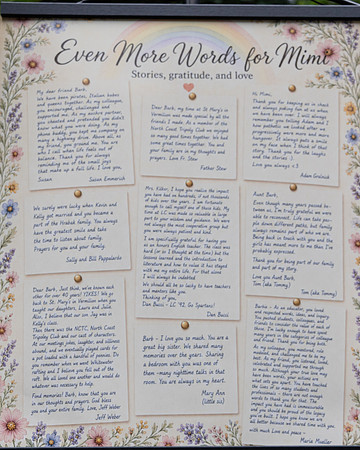 Even More Words for Mimi
Stories, gratitude, and love
My dear friend Barb,
We have been pirates, Italian babes
and gypsies together. As my colleague,
you encouraged, challenged and
supported me. As my advice partner,
you cheated and pretended you didn't
know what you were doing. As my
phone buddy, you kept me company on
many a highway drive. Above all, as
my friend, you ground me. You are
who I call when life feels out of
balance. Thank you for always
reminding me of the small joys
that make up a full life. I love you,
Susan
Susan Emmerich
Dear Barb, my time at St. Mary's in
Vermilion was made special by all the
friends I made. As a member of the
North Coast Tripoley Club we enjoyed
so many good times together. We had
some great times together. You and
your family are in my thoughts and
prayers. Love Fr. Stew
Father Stew
Hi Mimi,
Thank you for keeping us in check
and always making fun of us when
we have beer. I will always
remember you telling Adam and I
how pathetic we looked after we
progressively were more and more
hungover. It always brings a smile
on my face when I think of that
story. Thank you for the laughs
and the stories :).
Love you always <3
Adam Grolnick
We surely were lucky when Kevin and
Kelly got married and you became a
part of the Hrabak family. You always
have the greatest smile and take
the time to listen about family.
Prayers for you and your family
Sally and Bill Pappalardo
Mrs. Kilbar, I hope you realize the impact
you have had on hundreds, if not thousands
of kids over the years. I am fortunate
enough to call myself one of those kids. My
time at LC was made so valuable in large
part to your wisdom and guidance. We were
not always the most cooperative group but
you were always patient and kind.
I am specifically grateful for having you
as an honors English teacher. The class was
hard (or so I thought at the time) but the
lessons learned and the introduction to
literature and how to value it has stayed
with me my entire life. For that alone
I will always be indebted.
We should all be so lucky to have teachers
and mentors like you.
Thinking of you,
Dan Bucci - LC '92, Go Spartans!
Dan Bucci
Aunt Barb,
Even though many years passed be-
tween us, I'm truly grateful we were
able to reconnect. Life can take peo-
ple down different paths, but family
always remains part of who we are.
Being back in touch with you and the
girls has meant more to me than I've
probably expressed.
Thank you for being part of our family
and part of my story.
Love you Aunt Barb,
Tom (aka Tommy)
Tom (aka Tommy)
Dear Barb, Just think, we've known each
other for over 40 years! (YIKES). We go
back to St. Mary's in Vermilion when you
taught our daughters, Laura and Julia.
Also, I believe that our son Jay was in
Katy's class.
Then there was the NCTC, North Coast
Tripoley Club and our cast of characters.
All our meetings, jokes, laughter, and silliness
abound, and we eventually played cards for
a pot loaded with a handful of pennies. Do
you remember when we went Whitewater
rafting and I believe you fell out of the
raft. We all loved one another and would do
whatever was necessary to help.
Find memories! Barb, know that you are
in our thoughts and prayers. God bless
you and your entire family. Love, Jeff Weber
Jeff Weber
Barb - I love you so much. You are a
great big sister. We shared many
memories over the years. Sharing
a bedroom with you was one of
them - many nighttime talks in that
room. You are always in my heart.
Mary Ann
(little sis)
Barbie - As an educator, you lived
and respected words, ideas, and expres-
sion. You inspired students, colleagues, and
friends to consider the value of each of
them. I'm lucky enough to have spent
many years in the categories of colleague
and friend. Thank you for being both.
As my colleague, you mentored, con-
soled, and challenged me to be my
best. As my friend, you listened, com-
miserated, supported, and celebrated with
me so much. Although your time may
have been words, your actions are
what sets you apart. You have touched
the lives of so many students and
professionals - there are not enough
words to thank you for that. The
impact you have had is immeasurable
and you should be proud of the legacy
you've built. I hope you know we are
all better because we shared time with you.
with much Love and peace -
Maria Mueller